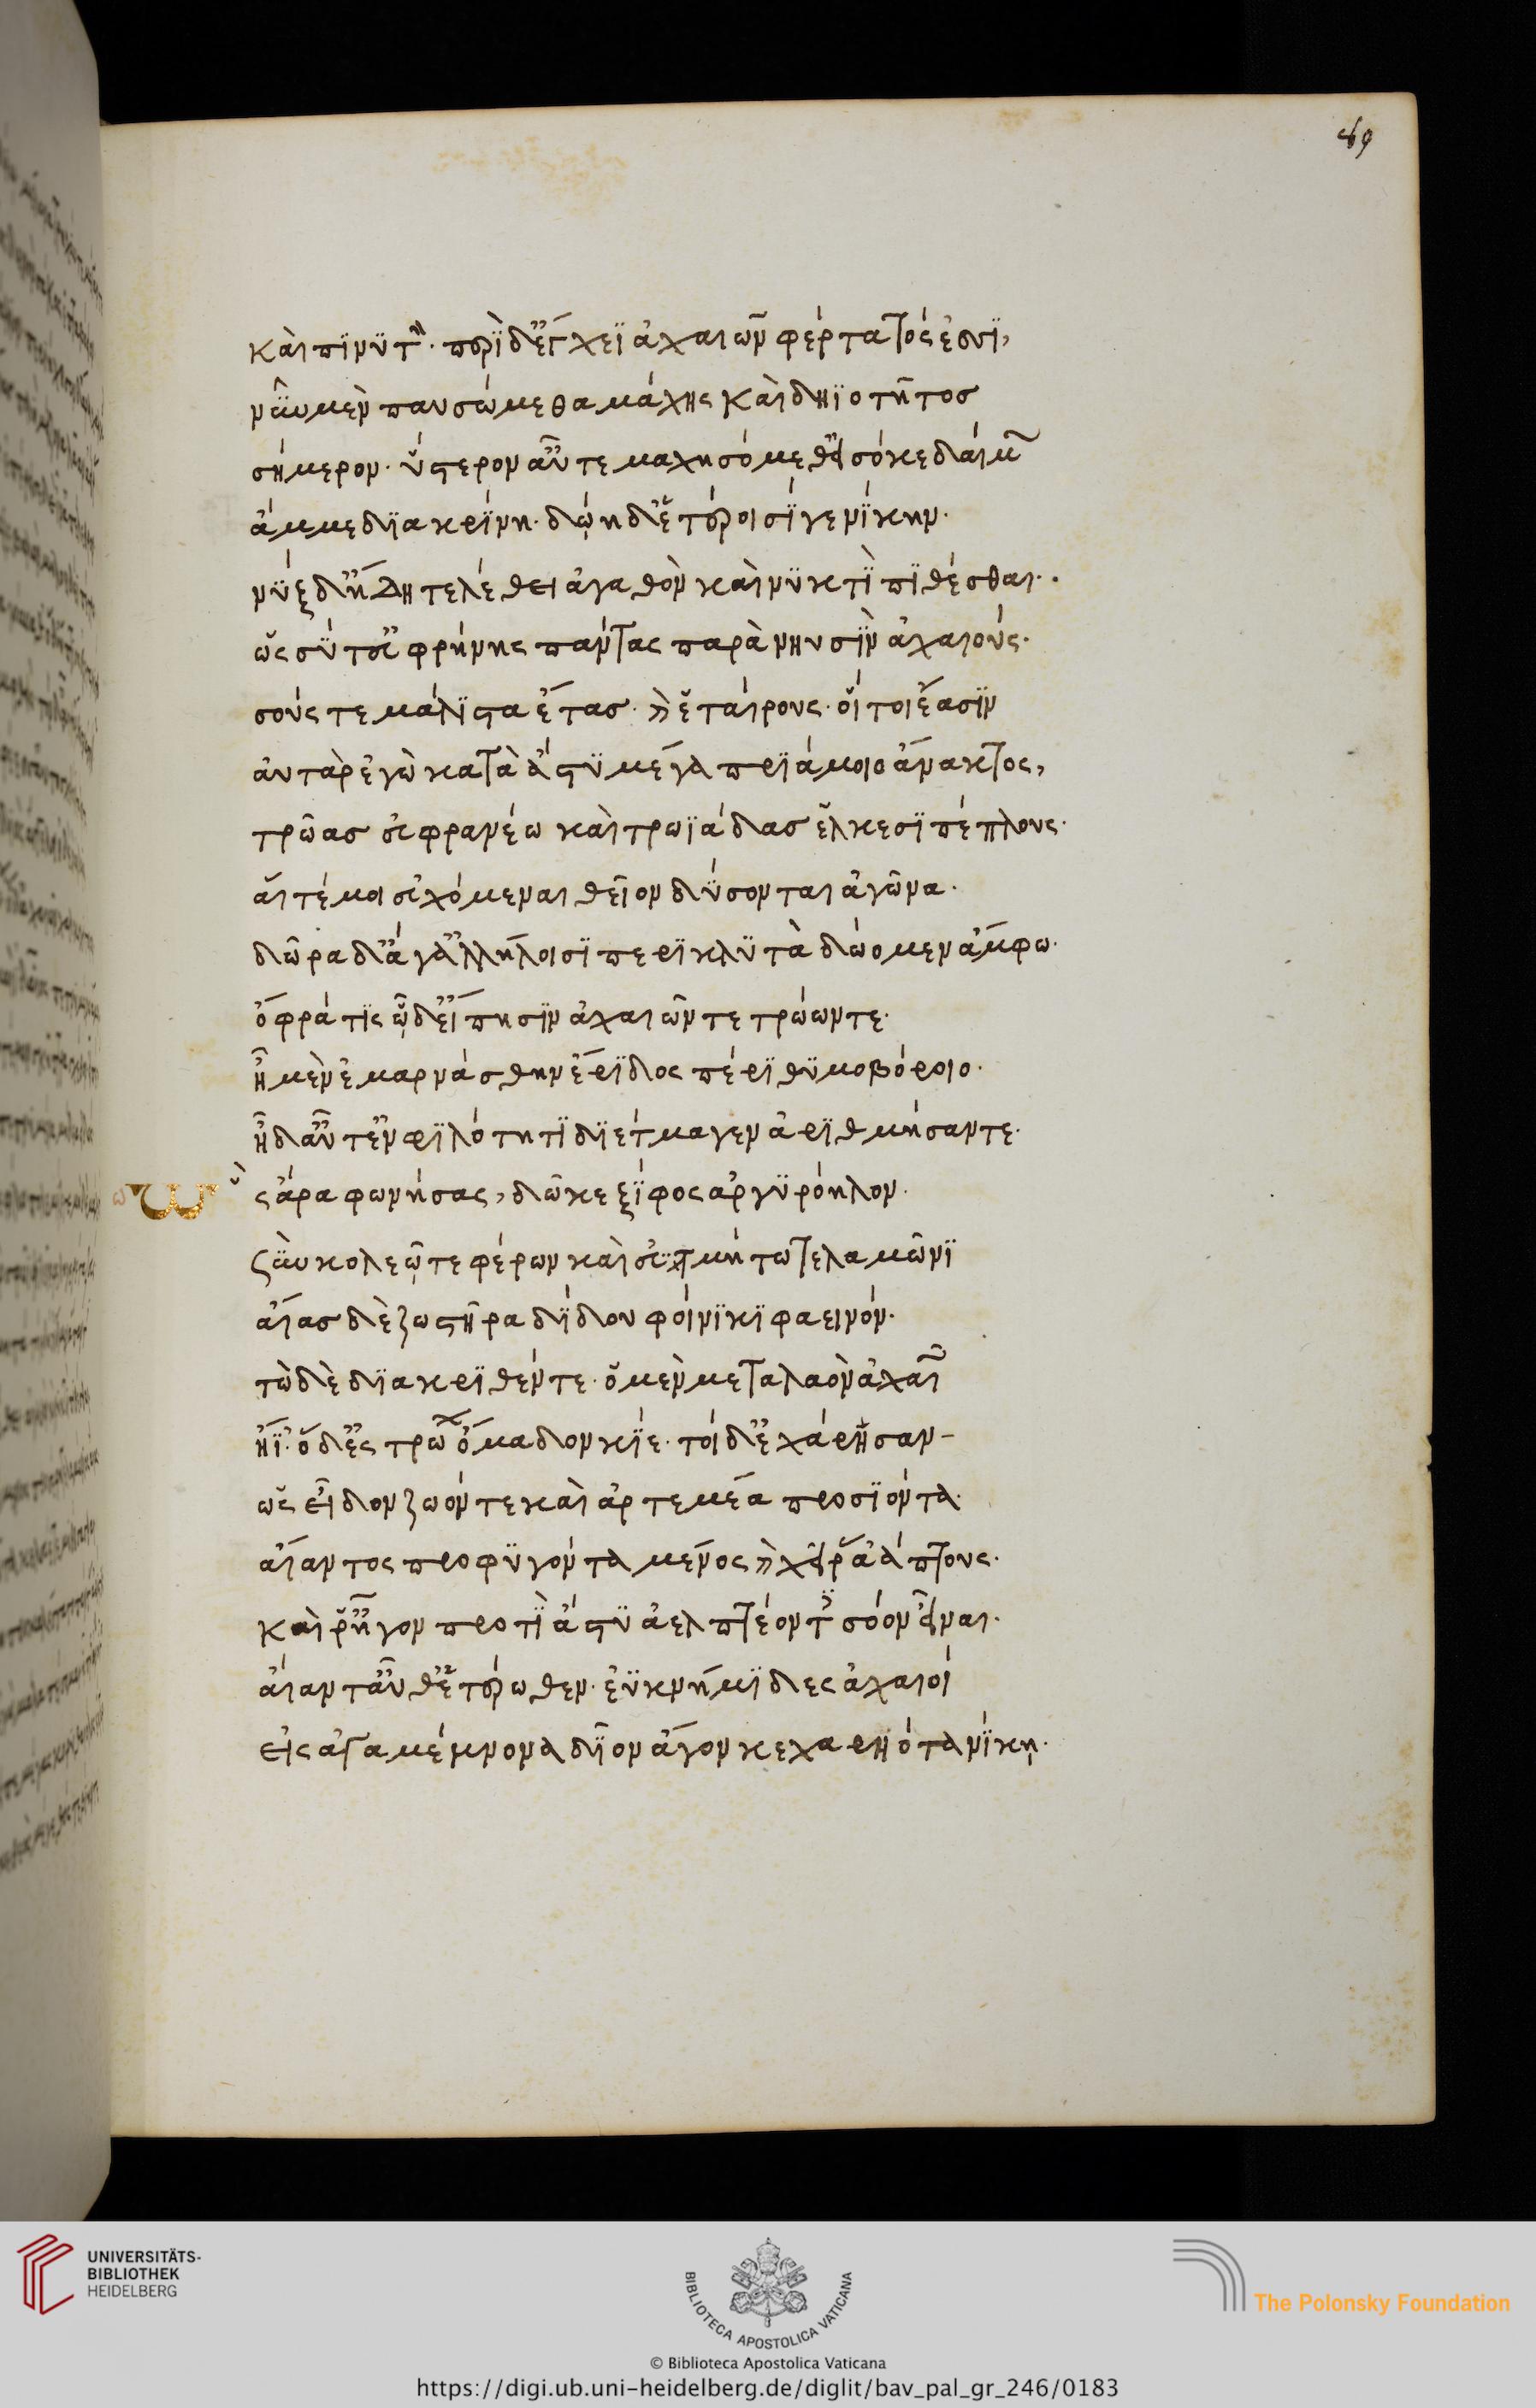 89
καὶ πϊνϋτήν· περὶ δ' ἔγχεϊ ἀχαιῶν φέρτατός ἐσσϊ,
νῦν μὲν παυσώμεθα μάχης καὶ δηϊοτῆτος
σήμερον· ὕστερον αὖτε μαχησόμεθ' εἰσόκε δαίμων
ἄμμε διακρίνη· δώη δ' ἑτέροισί γε νίκην·
νὺξ δ' ἤδη τελέθει ἀγαθὸν καὶ νυκτὶ πϊθέσθαι·
ὡς σύ τ' εὐφρήνης πάντας παρὰ νηυσὶν ἀχαιούς·
σούς τε μάλιστα ἔτας· καὶ ἑταίρους· οἵ τοι ἔασιν
αὐτὰρ ἐγὼ κατὰ ἄστυ μέγα πριάμοιο ἄνακτος,
τρῶας εὐφρανέω καὶ τρωϊάδας ἑλκεσϊπέπλους·
αἵ τέ μοι εὐχόμεναι θεῖον δύσονται ἀγῶνα·
δῶρα δ' ἄγ' ἀλλήλοισϊ περικλυτὰ δώομεν ἄμφω·
ὄφρά τις ὧδ' εἴπησιν ἀχαιῶν τε τρώων τε·
ἠμὲν ἐμαρνάσθην ἔριδος πέρι θυμοβόροιο·
ἠδ' αὖτ' ἐν φιλότητι διέτμαγεν ἀριθμήσαντε·
ὣς ἄρα φωνήσας, δῶκε ξίφος ἀργυρόηλον·
σὺν κολεῶ τε φέρων καὶ ἐϋτμήτω τελαμῶνϊ
αἴας δὲ ζωστῆρα δίδου φοίνικι φαεινόν·
τὼ δὲ διακρινθέντε· ὁ μὲν μετὰ λαὸν ἀχαιῶν
ἤϊ· ὁ δ' ἐς τρώων ὅμαδον κίε· τοὶ δ' ἐχάρησαν
ὡς εἶδον ζωόν τε καὶ ἀρτεμέα προσϊόντα·
αἴαντος προφυγόντα μένος καὶ χεῖρας ἀάπτους·
καί ῥ' ἦγον προτὶ ἄστυ ἀελπτέοντες σόον εἶναι·
αἴαντ' αὖθ' ἑτέρωθεν· ἐϋκνήμιδες ἀχαιοί
εἰς ἀγαμέμνονα δῖον ἄγον κεχαρηότα νίκη·
UNIVERSITÄTS-
BIBLIOTHEK
HEIDELBERG
BIBLIOTECA APOSTOLICA VATICANA
The Polonsky Foundation
© Biblioteca Apostolica Vaticana
https://digi.ub.uni-heidelberg.de/diglit/bav_pal_gr_246/0183